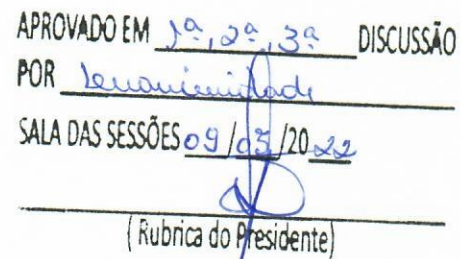 APROVADO EM 1ª, 2ª, 3ª DISCUSSÃO
POR unanimidade
SALA DAS SESSÕES 09/05/2022
(Rubrica do Presidente)